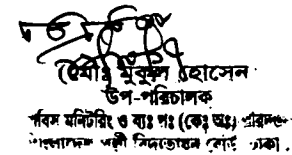 (মোঃ মুকুল হোসেন
উপ-পরিচালক
মনিটরিং ও ব্যঃ পঃ (কেঃ অঃ)
পল্লী বিদ্যুতায়ন বোর্ড, ঢাকা।